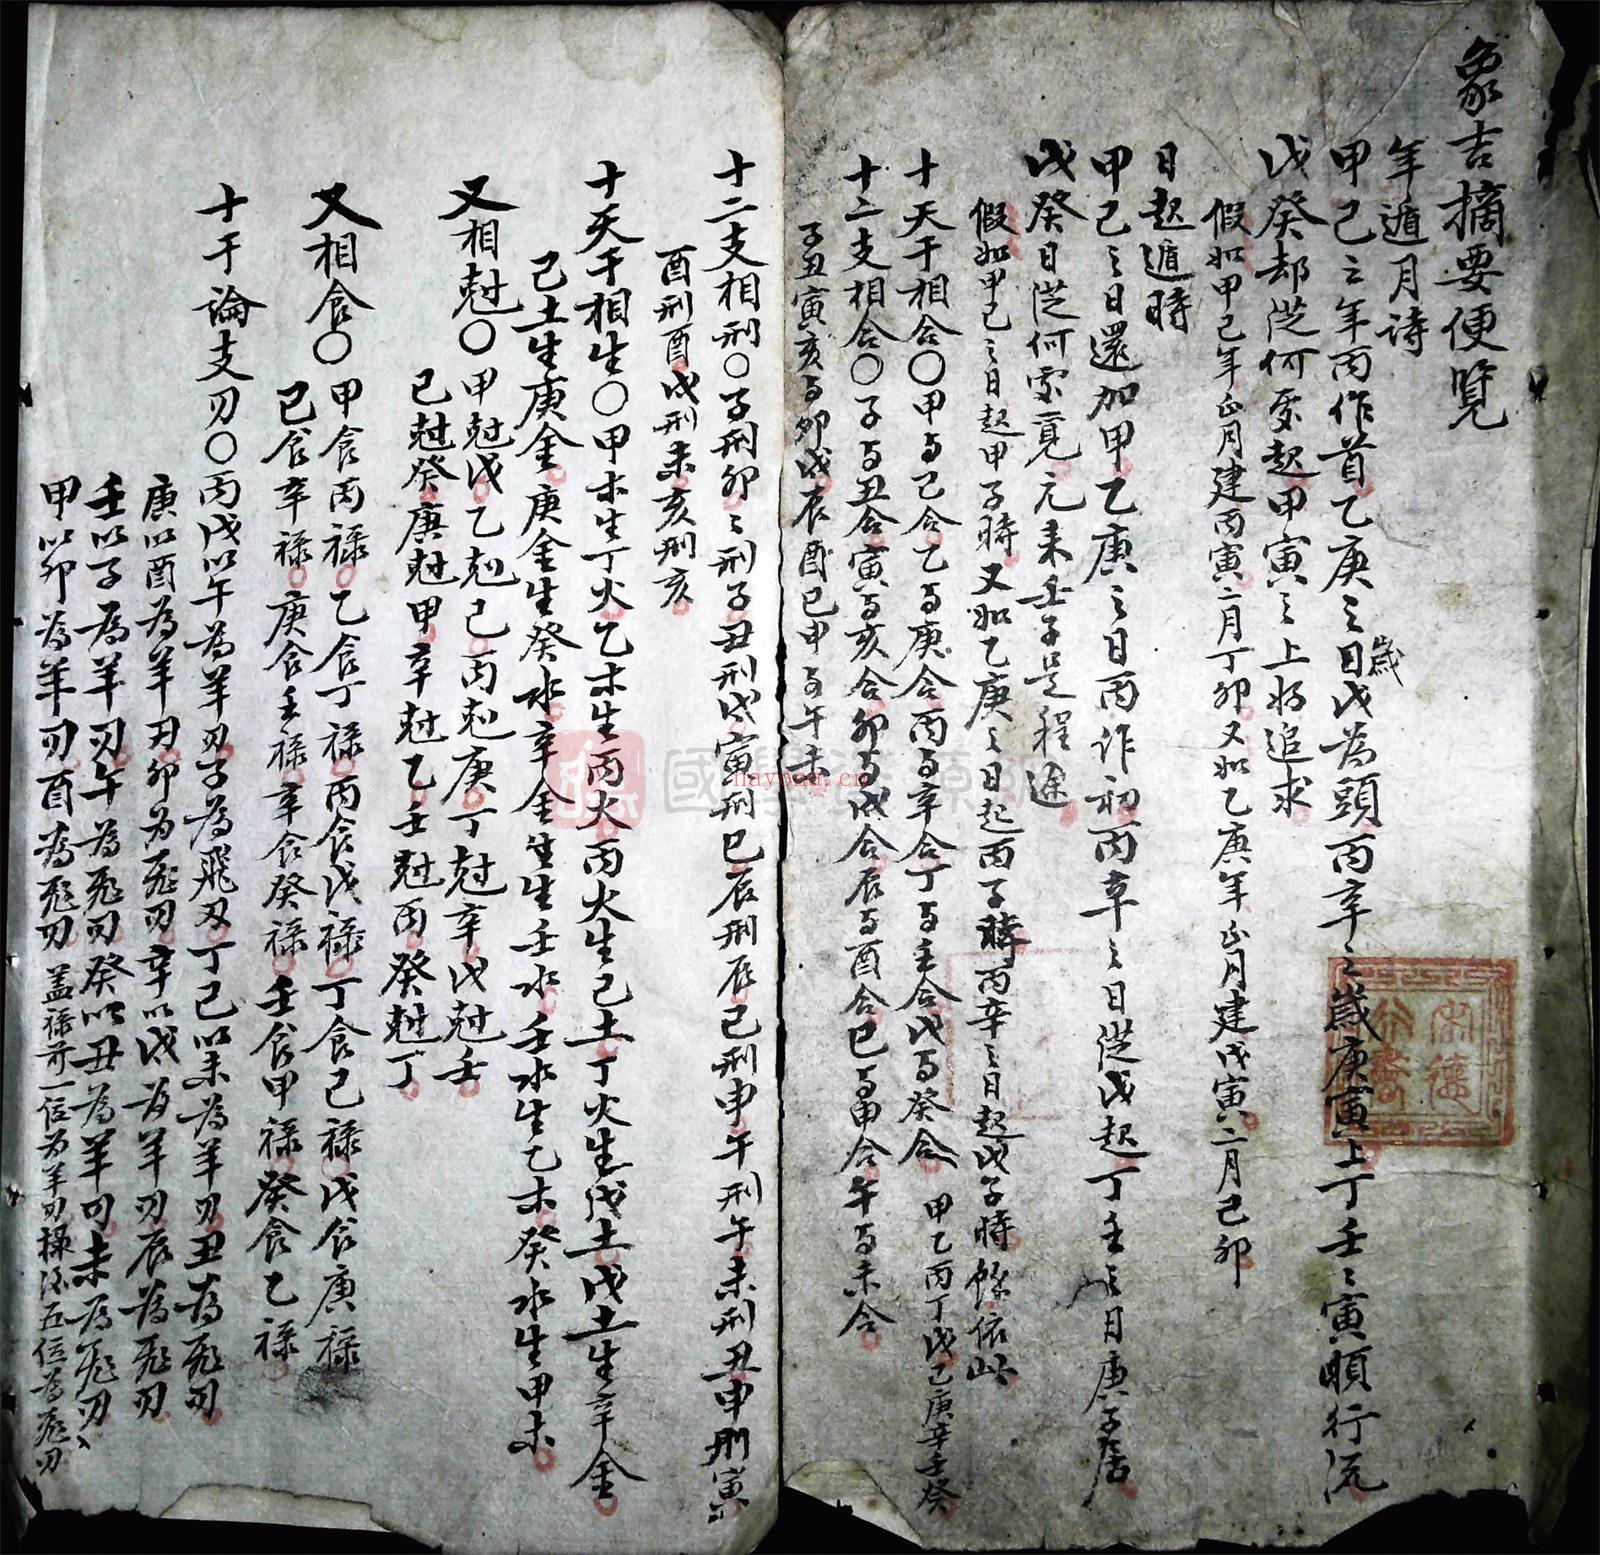 象吉摘要便覽
年遁月詩
甲己之年丙作首乙庚之目戊為頭丙辛之歲庚寅上丁壬壬寅順行流
歲
戊癸却從何處起甲寅之上好追求
假如甲己年正月建丙寅二月丁卯又如乙庚年正月建戊寅二月己卯
日起遁時
甲己之日還加甲乙庚之日丙作初丙辛之日從戊起丁壬之日庚子居
戊癸日從何處覓元來壬子是程途
假如甲己之日起甲子時又如乙庚之日起丙子時丙辛之日起戊子時餘依此
十天干相合〇甲与己合乙与庚合丙与辛合丁与壬合戊与癸合 甲乙丙丁戊己庚辛壬癸
十二支相合〇子与丑合寅与亥合卯与戌合辰与酉合巳与申合午与未合
子丑寅亥与卯戌辰酉巳申与午未
十二支相刑〇子刑卯〻刑子丑刑戌寅刑巳辰刑辰巳刑申午刑午未刑丑申刑寅
酉刑酉戌刑未亥刑亥
十天干相生〇甲木生丁火乙木生丙火丙火生己土丁火生戊土戊土生辛金
己土生庚金庚金生癸水辛金生壬水壬水生乙木癸水生甲木
又相尅〇甲尅戊乙尅己丙尅庚丁尅辛戊尅壬
己尅癸庚尅甲辛尅乙壬尅丙癸尅丁
又相食〇甲食丙祿乙食丁祿丙食戊祿丁食己祿戊食庚祿
己食辛祿庚食壬祿辛食癸祿壬食甲祿癸食乙祿
十干論支刃〇丙戊以午為羊刃子為飛刃丁己以未為羊刃丑為飛刃
庚以酉為羊刃卯為飛刃辛以戌為羊刃辰為飛刃
壬以子為羊刃午為飛刃癸以丑為羊刃未為飛刃
甲以卯為羊刃酉為飛刃蓋祿前一位為羊刃祿後五位為飛刃
naypaa.cn